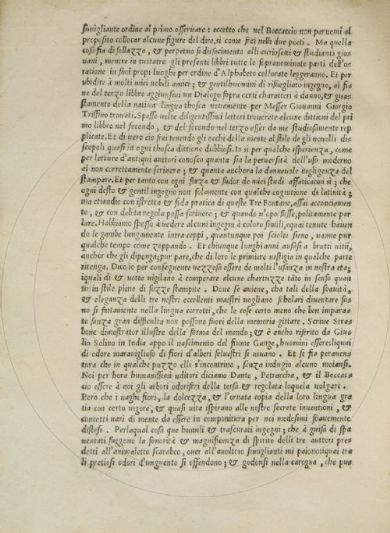 simigliante ordine al primo osservare: eccetto che nel Boccaccio non parvemi al
proposito collocar alcune figure del dire, si come feci nelli due poeti. Ma quella
cosa sia di sollazzo, & perpetuo sodisfacimento alli curiosetti & studianti giova
uani, mentre in tuttatre gli presenti libri tutte le sopranominate parti dell'o=
ratione in suoi propi luoghi per ordine d'Alphabeto collocate leggeranno. Et per
ubidire à molti miei nobili amici, & gentilhuomini di risvegliato ingegno, al fi=
ne del terzo libbro aggiunsivi un Dialogo sopra certi caratteri à danno, & guas
stamento della nativa lingua thosca novamente per Messer Giovanni Giorgio
Trissino trovati. Spesse volte diligentissimi lettori troverete alcune dittioni del pri
mo libbro nel secondo, & del secondo nel terzo esser da me studiosamente rep
plicate. Et di nuovo ciò fei tenendo gli occhi della mente al stile de gli novelli dis
scepoli quasi in ogni thosca dittione dubbiosi. Io sì per qualche isperienza, come
per lettura d'antiqui auttori conosco quanta sia la perversità dell'uso moderno
ai non correttamente scrivere; & quanta anchora la dannevole negligenza del
stampare. Et per tanto con ogni sforza & sudor de miei studi affaticaimi sì; che
ogni desto & gentil ingegno non solamente con qualche cognitione de latinità;
ma etiandio con ischietta & fida pratica di queste Tre Fontane, assai acconciamen=
te, & con debita regola possa scrivere; & quando v'opo fusse, politamente par
lare. Habbiamo spesso à vedere alcuni ingegni à coloro simili, quai tenute haven
do le gambe lungamente intra ceppi, quantunque poi sciolti sieno, vanne pur
qualche tempo come zoppando. Et chiunque lunghi anni ausossi a brutti vitii,
anchor che gli diponga; pur pare, che di loro le primiere vestigia in qualche parte
ritenga. Dicolo per conseguente mezzosi essere de molti l'usanza in nostra età;
iquali di & notte vigilano à comperare alcune chartuzze talte in senso quan=
to in stile piene di sozze stampite. Dove se aviene, che tali della soavità,
& eleganza delli tre nostri eccellenti maestri vogliano scholari diventare sos
no sì fittamente nella lingua corrotti, che le cose certo meno che ben impara=
te senza gran difficultà non possono fuori della memoria gittare. Scrive Stras
bone dimostrator illustre della forma del mondo; & è ancho riferito da Giu
lio Solino in India appo il nascimento del fiume Gange, huomini essere; iquai
di odore maraviglioso di fiori d'alberi selvestri si vivano. Et se sia peraven
tura che in qualche puzzo elli s'incontrino, senza indugio alcuno moionsi.
Noi per hora humanissimi uditori diciamo Dante, Petrarcha, & il Boccac
cio essere à noi gli arbori odoriferi della tersa & regolata loquela volgare.
Però che i vaghi fiori, la dolcezza, & l'ornata copia della loro lingua gra
tia con certo vigore, & quasi vita ispirano alle nostre secrete inventioni, &
concetti nati di mente da essere in compositura per noi medesimi soavemente
distesi. Perlaqual cosa que humili & trascurati ingegni; che à guisa di spa
ventati fuggono la sonorità & magnificenza di spirito delli tre auttori pres
detti all'animaletto scarabeo, over all'avoltoio simiglianti mi paiono; iquai tra
li pretiosi odori d'unguento si offendono; & godonsi nella carogna, che puz